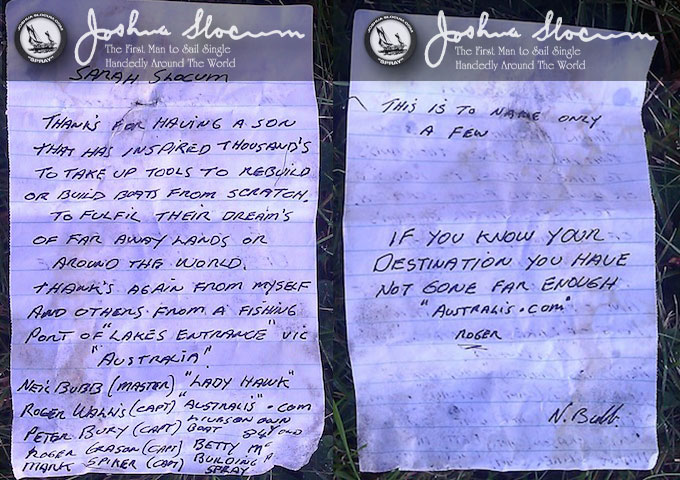 JOSHUA SLOCUM
"SPRAY"
Joshua Slocum
The First Man to Sail Single
Handedly Around The World
SARAH SLOCUM
THANK'S FOR HAVING A SON
THAT HAS INSPIRED THOUSAND'S
TO TAKE UP TOOLS TO REBUILD
OR BUILD BOATS FROM SCRATCH.
TO FULFIL THEIR DREAM'S
OF FAR AWAY LANDS OR
AROUND THE WORLD.
THANK'S AGAIN FROM MYSELF
AND OTHERS FROM A FISHING
PORT OF "LAKES ENTRANCE" VIC
"AUSTRALIA"
NEIL BUBB (MASTER) "LADY HAWK"
ROGER WALLIS (CAPT) "AUSTRALIS".COM
PETER BURY (CAPT) OWN
BOAT 84 Y OLD
ROGER (CAPT) BETTY Mc
MARK SPIKER (CAPT) BUILDING A
SPRAY
JOSHUA SLOCUM
"SPRAY"
Joshua Slocum
The First Man to Sail Single
Handedly Around The World
THIS IS TO NAME ONLY
A FEW
IF YOU KNOW YOUR
DESTINATION YOU HAVE
NOT GONE FAR ENOUGH
"AUSTRALIS.COM"
ROGER
N. Bubb.